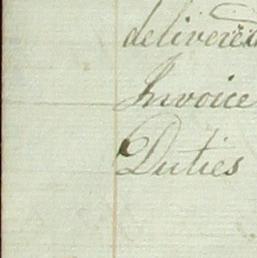 delivered
Invoice
Duties